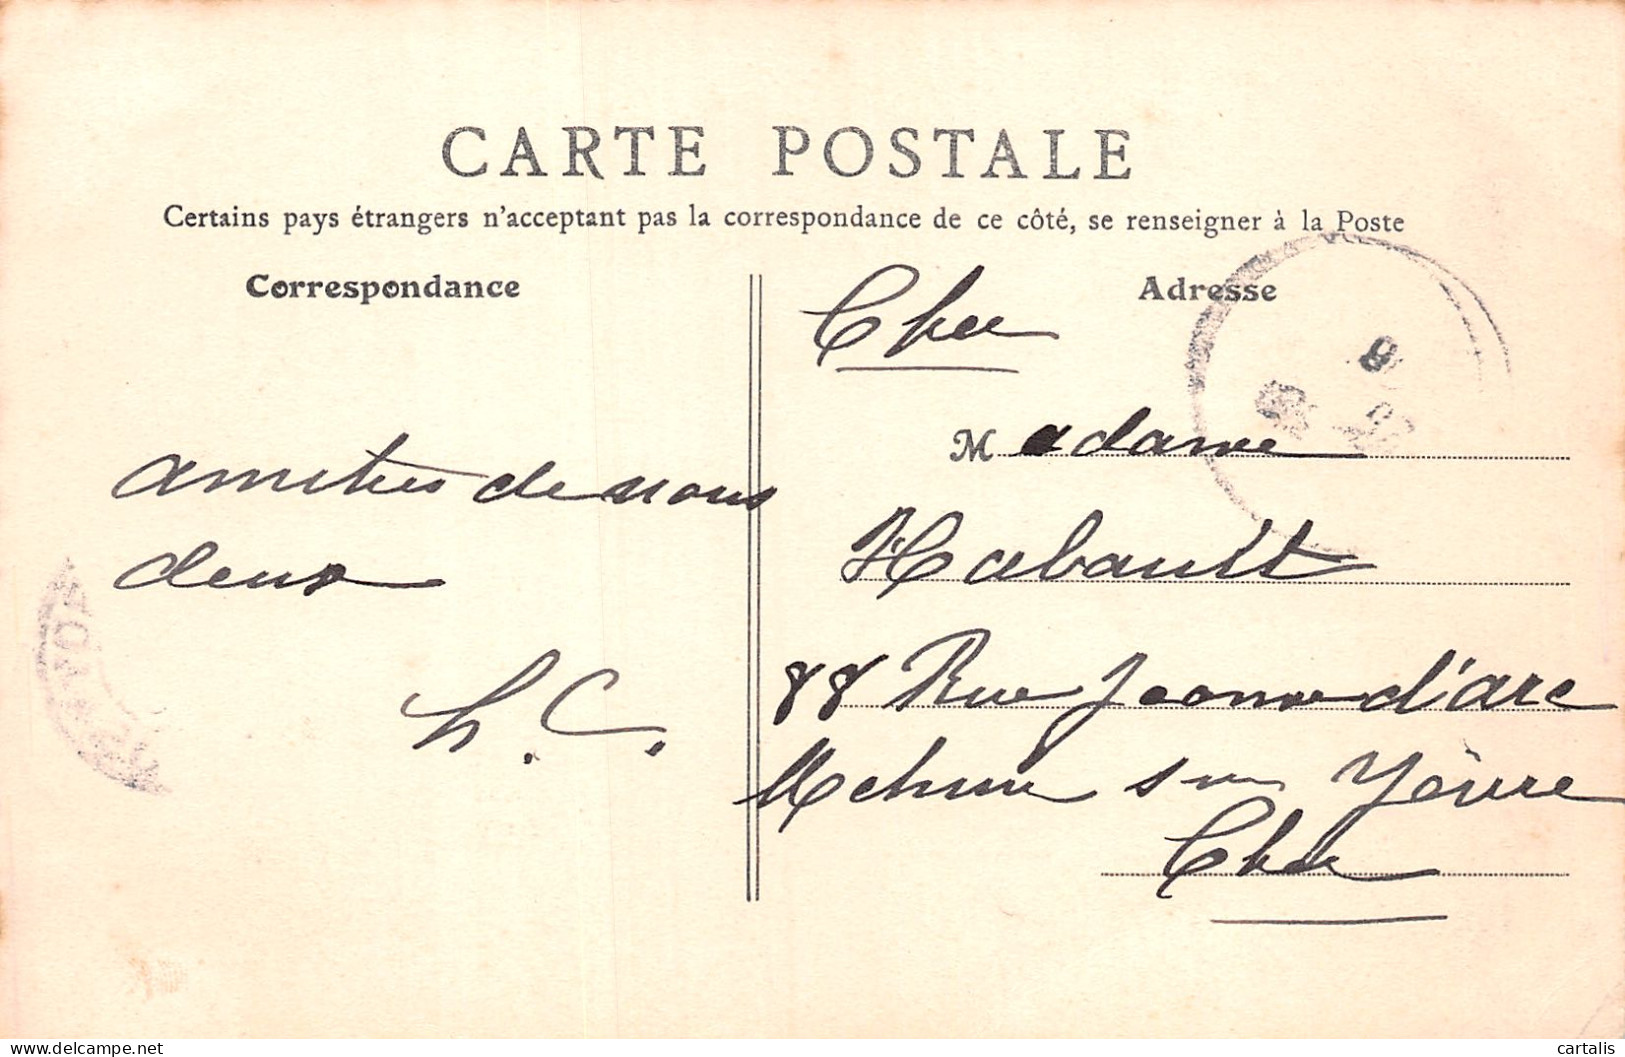 CARTE POSTALE
Certains pays étrangers n'acceptant pas la correspondance de ce côté, se renseigner à la Poste
Correspondance
Adresse
amities de nous
deux
h. C.
Cher
Madame
Habault
88 Rue Jeanne d'arc
Mehun sur Yèvre
Cher
www.delcampe.net
cartalis